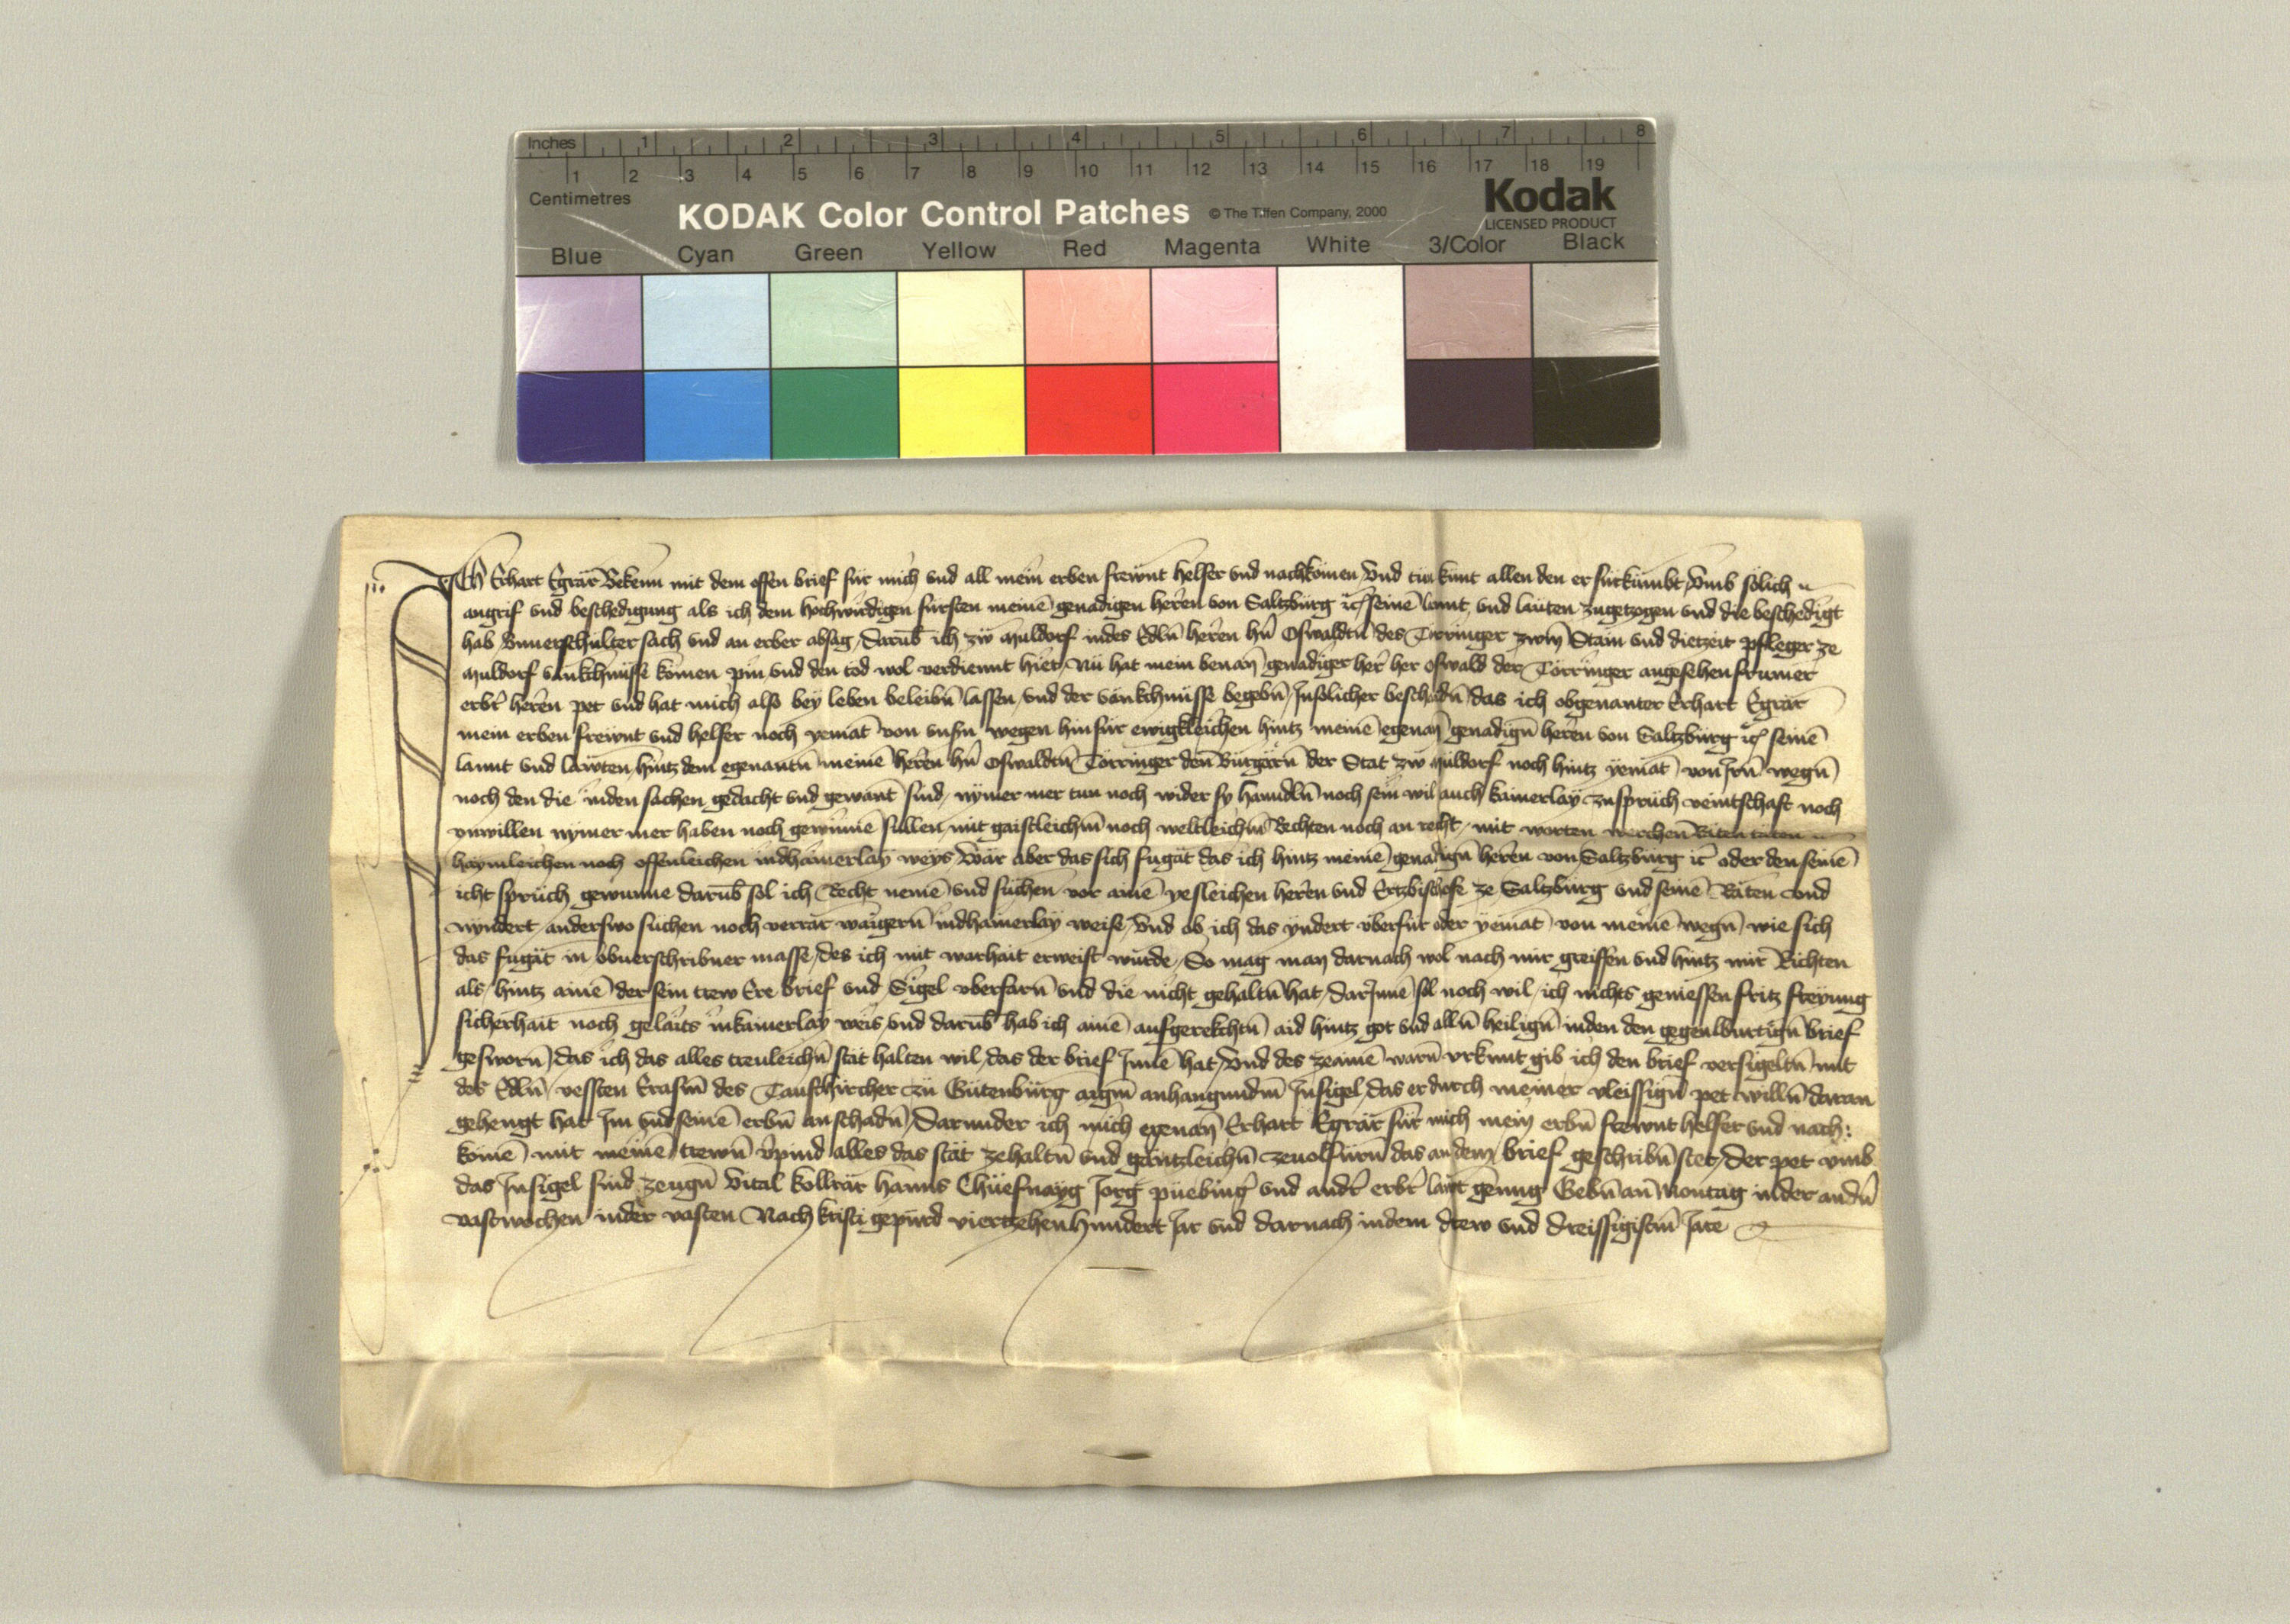 Inches 1 2 3 4 5 6 7 8
1 2 3 4 5 6 7 8 9 10 11 12 13 14 15 16 17 18 19
Centimetres
KODAK Color Control Patches © The Tiffen Company, 2000
Kodak
LICENSED PRODUCT
Blue Cyan Green Yellow Red Magenta White 3/Color Black
Ich Erhart Egrär Bekenn mit dem offen brief für mich vnd all mein erben frewnt helfer vnd nachkomen, Vnd tun kunt allen den er fürkümbt, Vmb sölich
angrif vnd beschedigung als ich dem hochwirdigen fürsten meinē genadigen herren von Saltzburg ꝛc seinē lannt vnd läuten zugetzogen vnd die beschedigt
hab Vnuerschulter sach vnd an erber absag, Darūb ich zw Muldorf indes Edln̄ herren hn̄ Oswaldtn̄ des Törringer zwm Stain vnd dietzeit pfleger ze
Muldorf vankchnüsse komen pin, vnd den tod wol verdiennt hiet, Nu hat mein benan̄ genadiger her her Oswald der Törringer angesehen frumer
erbr̄ herren pet vnd hat mich also bey leben beleibn̄ lassen, vnd der vankchnüsse begebn̄, Insölicher beschaidn̄ das ich obgenanter Erhart Egrär
mein erben frewnt vnd helfer noch yemāt von vnsn̄ wegen hinfür ewigkleichen hintz meinē egenan̄ genadign̄ herren von Saltzburg ꝛc seinē
lannt vnd läwten, hintz dem egenantn̄ meinē herren hn̄ Oswaldtn̄ Törringer den Burgärn̄ der Stat zw Müldorf noch hintz yemāt von Irn̄ wegn̄
noch den die inden sachen gedacht vnd gewant sind, nymer mer tun noch wider sy hanndln̄ noch sein wil auch kainerlay zuspruch veintschaft noch
vnwillen nymer mer haben noch gewinnē süllen mit gaistleichm̄ noch weltleichm̄ Rechten noch an recht, mit worten werchen Räten täten
haymleichen noch offenleichen indhainerlay weys Wär aber das sich fugät das ich hintz meinē genadign̄ herren von Saltzburg ꝛc oder den seinē
icht sprüch gewunne darūb sol ich Recht nemē vnd suchen vor ainē yesleichen herren vnd Ertzbischofe ze Saltzburg vnd seinē Räten vnd
nyndert anderswo suchen noch verrär waigern̄ indhainerlay weise, Vnd ob ich das yndert vberfür oder yemāt von meinē wegn̄ wie sich
das fugät in obuerschribner masse, des ich mit warhait erweist würde, So mag man darnach wol nach mir greiffen vnd hintz mir Richten
als hintz ainē der sein trew Ere brief vnd Sigel vberfarn̄ vnd die nicht gehaltn̄ hat, darInnē sol noch wil ich nichts geniessen fritz freyung
sicherhait noch gelaits inkainerlay weis, vnd darūb hab ich ainē aufgerekchtn̄ aid hintz got vnd alln̄ heilign̄ inden den gegenburtign̄ brief
gesworn̄, das ich das alles treuleichn̄ stät halten wil, das der brief Innē hat, Vnd des zeainē warn̄ vrkunt gib ich den brief versigeltn̄ mit
des Edln̄ vessten Erasm̄ des Taufkircher zu Gutenburg aigm̄ anhangundm̄ Insigel, das er durch meiner vleissign̄ pet willn̄ daran
gehengt hat Im vnd seinē erbn̄ an schadn̄, Darunder ich mich egenan̄ Erhart Egrär für mich mein erbn̄ frewnt helfer vnd nach:
komē mit meinē trewn̄ v̄pind alles das stät zehaltn̄ vnd gäntzleichn̄ zeuolfürn̄ das an dem brief geschribn̄ stet, Der pet vmb
das Insigel sind zeugn̄ Vital Kollrär Hanns Chüefnayg Jorg püebing̅ vnd andr̄ erbr̄ läwt genug Gebn̄ an Montag inder andn̄
vastwochen inder vasten Nach kristi gepürd viertzehenhundert Jar vnd darnach indem drew vnd dreissigistm̄ Jare